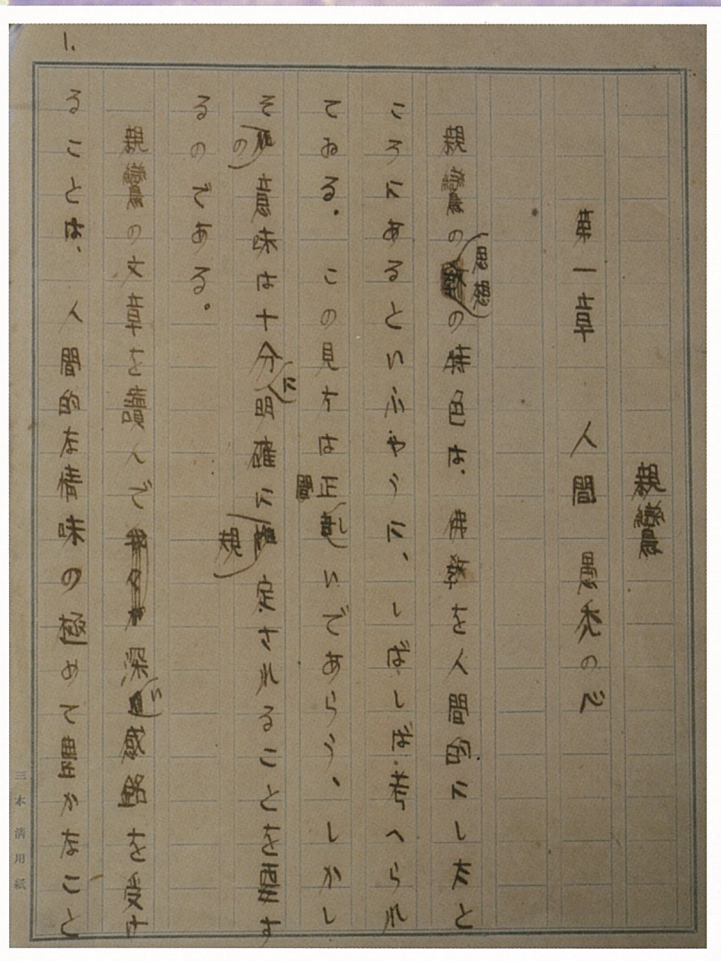 1.
親鸞
第一章 人間 愚禿の心
親鸞の思想の特色は、佛教を人間的にしたと
ころにあるといふやうに、しばしば考へられ
てゐる。この見方は正しいであらう、しかし
その意味は十分に明確に規定されることを要す
るのである。
親鸞の文章を讀んで深い感銘を受け
ることは、人間的な情味の極めて豊かなこと
三木清用紙